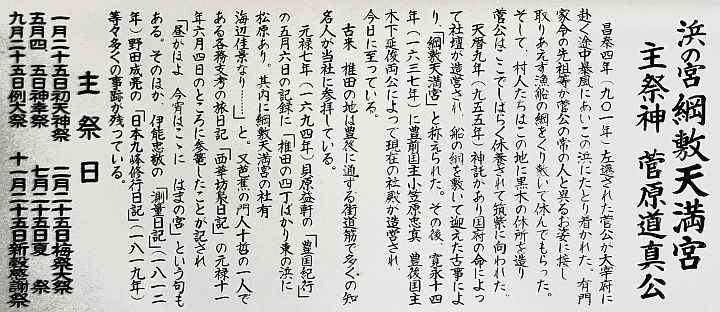 浜の宮綱敷天満宮
主祭神 菅原道真公
昌泰四年(九〇一年)左遷された菅公が大宰府に
赴く途中暴風にあいこの浜にたどり着かれた。有門
家令の先祖等が菅公の常の人と異るお姿に接し
取りあえず漁船の綱をくり敷いて休んでもらった。
そして、村人たちはこの地に黒木の休所を造り
菅公はここでしばらく休養されて筑紫に向われた。
天暦九年(九五五年)神託があり国府の命によっ
て社壇が造営され、船の綱を敷いて迎えた古事によ
り、「綱敷天満宮」と称えられた。その後、寛永十四
年(一六三七年)に豊前国主小笠原忠真 豊後国主
木下延俊両公によって現在の社殿が造営され、
今日に至っている。
古来、椎田の地は豊後に通ずる街道筋で多くの知
名人が当社に参拝している。
元禄七年(一六九四年)貝原益軒の「豊国紀行」
の五月六日の記録に「椎田の四丁ばかり東の浜に
松原あり。其内に綱敷天満宮の社有
海辺佳景なり……」と。又芭蕉の門人十哲の一人で
ある各務支考の旅日記「西華坊梟日記」の元禄十一
年六月四日のところに参篭したことが記され
「昼かほよ 今宵はここに はまの宮」という句も
ある。そのほか、伊能忠敬の「測量日記」(一八一二
年)野田成亮の「日本九峰修行日記」(一八一九年)
等々多くの事跡が残っている。
主祭日
一月二十五日初天神祭 二月二十五日梅栄大祭
五月四、五日神幸祭 七月二十五日夏祭
九月二十五日例大祭 十一月二十五日新穀感謝祭